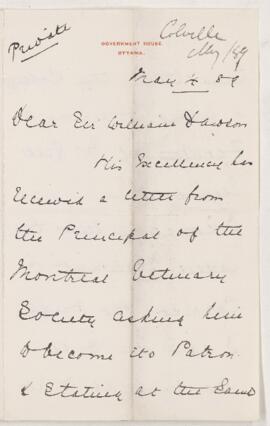 Private
Colville
May/89
GOVERNMENT HOUSE.
OTTAWA.
May 4 89
Dear Sir William Dawson
His Excellency has
received a letter from
the Principal of the
Montreal Vetinary
Society asking him
to become its Patron
& stating at the same